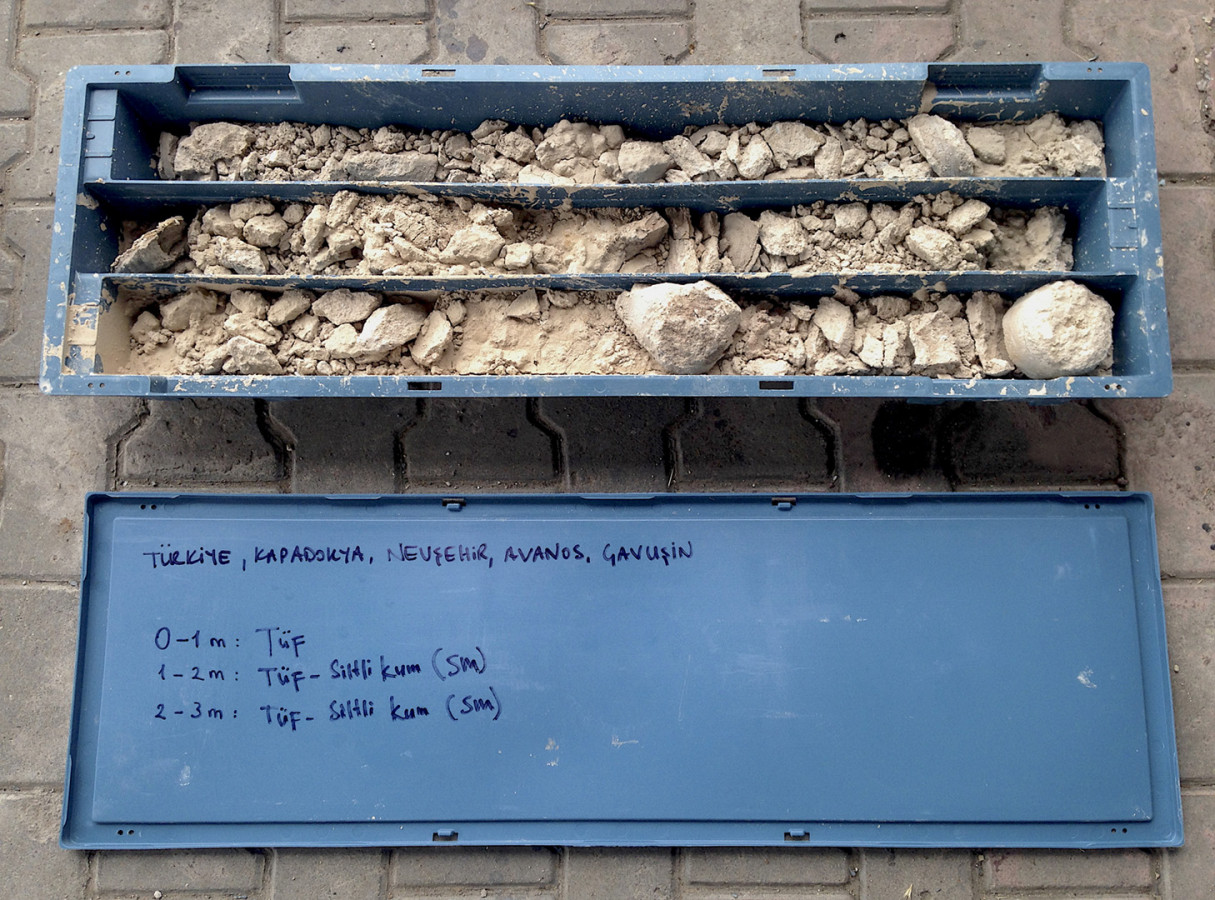 TÜRKİYE, KAPADOKYA, NEVŞEHİR, AVANOS, ÇAVUŞİN
0-1 m: Tüf
1-2 m: Tüf- Siltli kum (SM)
2-3 m: Tüf- Siltli kum (SM)